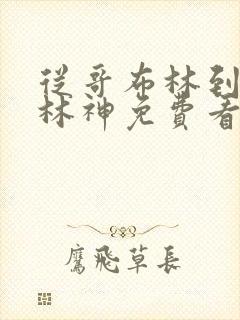 從哥布林到
林神免費看
鷹飛草長